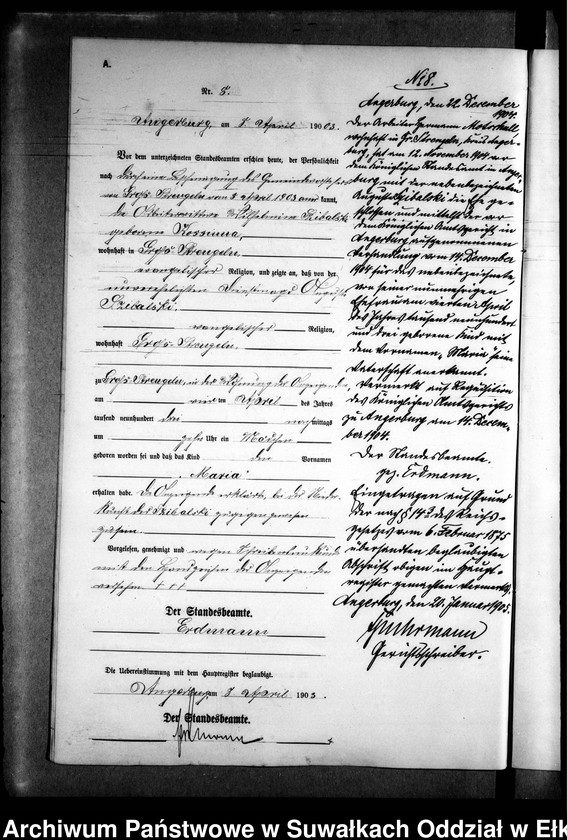 A.
Nr. 8.
Angerburg, am 8. April 1903.
Vor dem unterzeichneten Standesbeamten erschien heute, der Persönlichkeit
nach
von Groß Strengeln vom 3. April 1903 anerkannt,
die Wilhelmine Szibalski
geborene Kossinna,
wohnhaft in Groß Strengeln,
evangelischer Religion, und zeigte an, daß von der
unverehelichten Dienstmagd Auguste
Szibalski,
evangelischer Religion,
wohnhaft Groß Strengeln,
zu Groß Strengeln, in der Wohnung der Anzeigenden,
am vierten April des Jahres
tausend neunhundert drei mittags
um Uhr ein Mädchen
geboren worden sei und daß das Kind den Vornamen
Maria
erhalten habe. Die Anzeigende erklärte, bei der Nieder-
kunft der Szibalski zugegen gewesen
zu sein.
Vorgelesen, genehmigt und wegen Schreibensunkunde
mit den Handzeichen der Anzeigenden
versehen. + + +
Der Standesbeamte.
Erdmann
Die Uebereinstimmung mit dem Hauptregister beglaubigt.
Angerburg, am 8. April 1903.
Der Standesbeamte.
Erdmann
No 8.
Angerburg, den 22. Dezember
1904.
Der Arbeiter Hermann
wohnhaft in Gr. Strengeln, Kreis Anger-
burg, hat am 12. November 1904 vor
dem Königlichen Standesamt in Anger-
burg mit der nebenbezeichneten
Auguste Szibalski die Ehe ge-
schlossen und mittelst der vor
dem Königlichen Amtsgericht in
Angerburg aufgenommenen
Verhandlung vom 14. Dezember
1904 für das nebenbezeichnete,
von seiner nunmehrigen
Ehefrau am vierten April
des Jahres tausend neunhundert
und drei geborene Kind mit
dem Vornamen "Maria" seine
Vaterschaft anerkannt.
Vermerkt auf Requisition
des Königlichen Amtsgerichts
zu Angerburg am 14. Dezem-
ber 1904.
Der Standesbeamte.
gez. Erdmann.
Eingetragen auf Grund
der nach § 14 des Reichs-
gesetzes vom 6. Februar 1875
übersandten beglaubigten
Abschrift obigen im Haupt-
register gemachten Vermerks.
Angerburg, den 20. Januar 1905.
Gerichtsschreiber.
Archiwum Państwowe w Suwałkach Oddział w Ełk